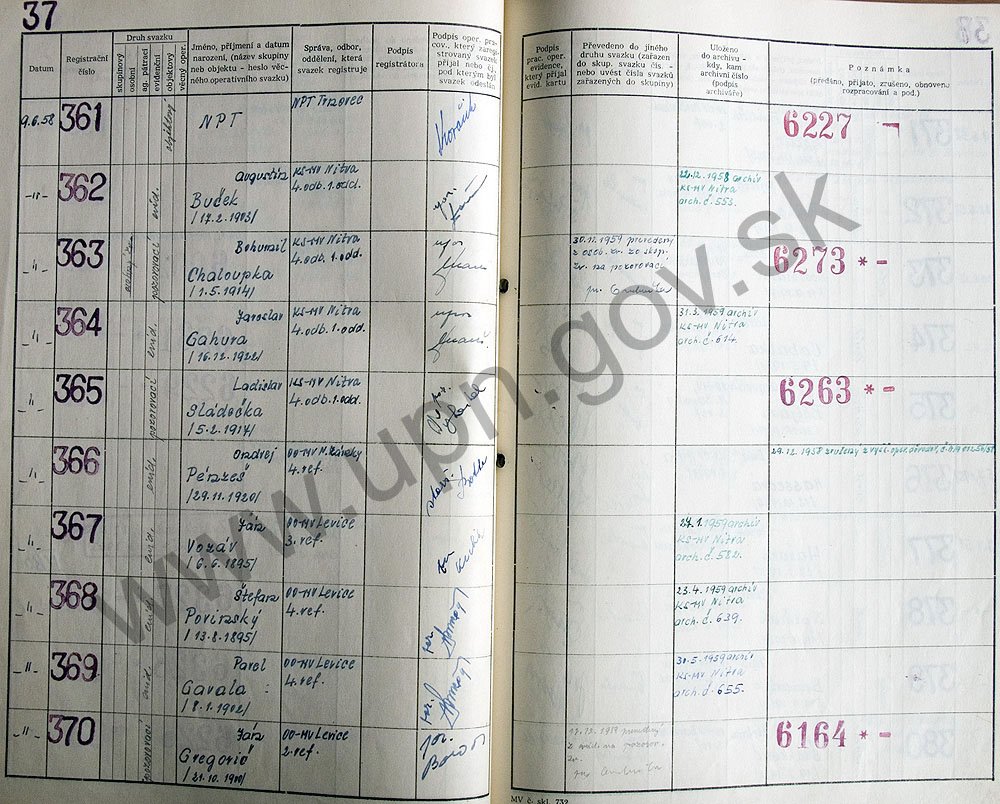 37
Datum
Registrační
číslo
Druh svazku
skupinový
osobní
ag. pátrací
evidenční
objektový
věcný oper.
Jméno, příjmení a datum
narození, (název skupiny
neb objektu - heslo věc-
ného operativního svazku)
Správa, odbor,
oddělení, která
svazek registruje
Podpis
registrátora
Podpis oper. pra-
cov., který zareg-
istrovaný svazek
přijal neb čj.,
pod kterým byl
svazek odeslán
Podpis
prac. oper.
evidence,
který přijal
evid. kartu
Převedeno do jiného
druhu svazku (zařazen
do skup. svazku čís. -
nebo uvést čísla svazků
zařazených do skupiny)
Uloženo
do archivu -
kdy, kam
archivní číslo
(podpis
archiváře)
Poznámka
(předáno, přijato, zrušeno, obnoveno
rozpracování a pod.)
9.6.58
361
objektový
NPT
6227
-"-
362
evid.
Augustin
Buček
/17.2.1903/
KS-MV Nitra
4.odb.1.odd.
22.12.1958 archív
KS-MV Nitra
arch.č.553.
-"-
363
pozorovací
Bohumil
Chaloupka
/1.5.1914/
KS-MV Nitra
4.odb.1.odd.
30.11.1959 prevedený
z osob. zv. zo skup.
zv. na pozorovac.
6273 * -
-"-
364
evid.
Jaroslav
Gahura
/16.12.1922/
KS-MV Nitra
4.odb.1.odd.
31.3.1959 archív
KS-MV Nitra
arch.č.614.
-"-
365
pozorovací
Ladislav
Sládečka
/5.2.1914/
KS-MV Nitra
4.odb.1.odd.
6263 * -
-"-
366
evid.
Ondrej
Pérzeš
/29.11.1920/
OO-MV N.Zámky
4.ref.
29.12.1958 zrušený
-"-
367
evid.
Ján
Vozár
/6.6.1895/
OO-MV Levice
3.ref.
27.1.1959 archív
KS-MV Nitra
arch.č.582.
-"-
368
evid.
Štefan
Povinský
/13.8.1895/
OO-MV Levice
4.ref.
23.4.1959 archív
KS-MV Nitra
arch.č.639.
-"-
369
evid.
Pavel
Gavala
/8.1.1902/
OO-MV Levice
4.ref.
30.5.1959 archív
KS-MV Nitra
arch.č.655.
-"-
370
pozorovací
Ján
Gregorič
OO-MV Levice
2.ref.
6164 * -
MV č. skl. 732
www.upn.gov.sk